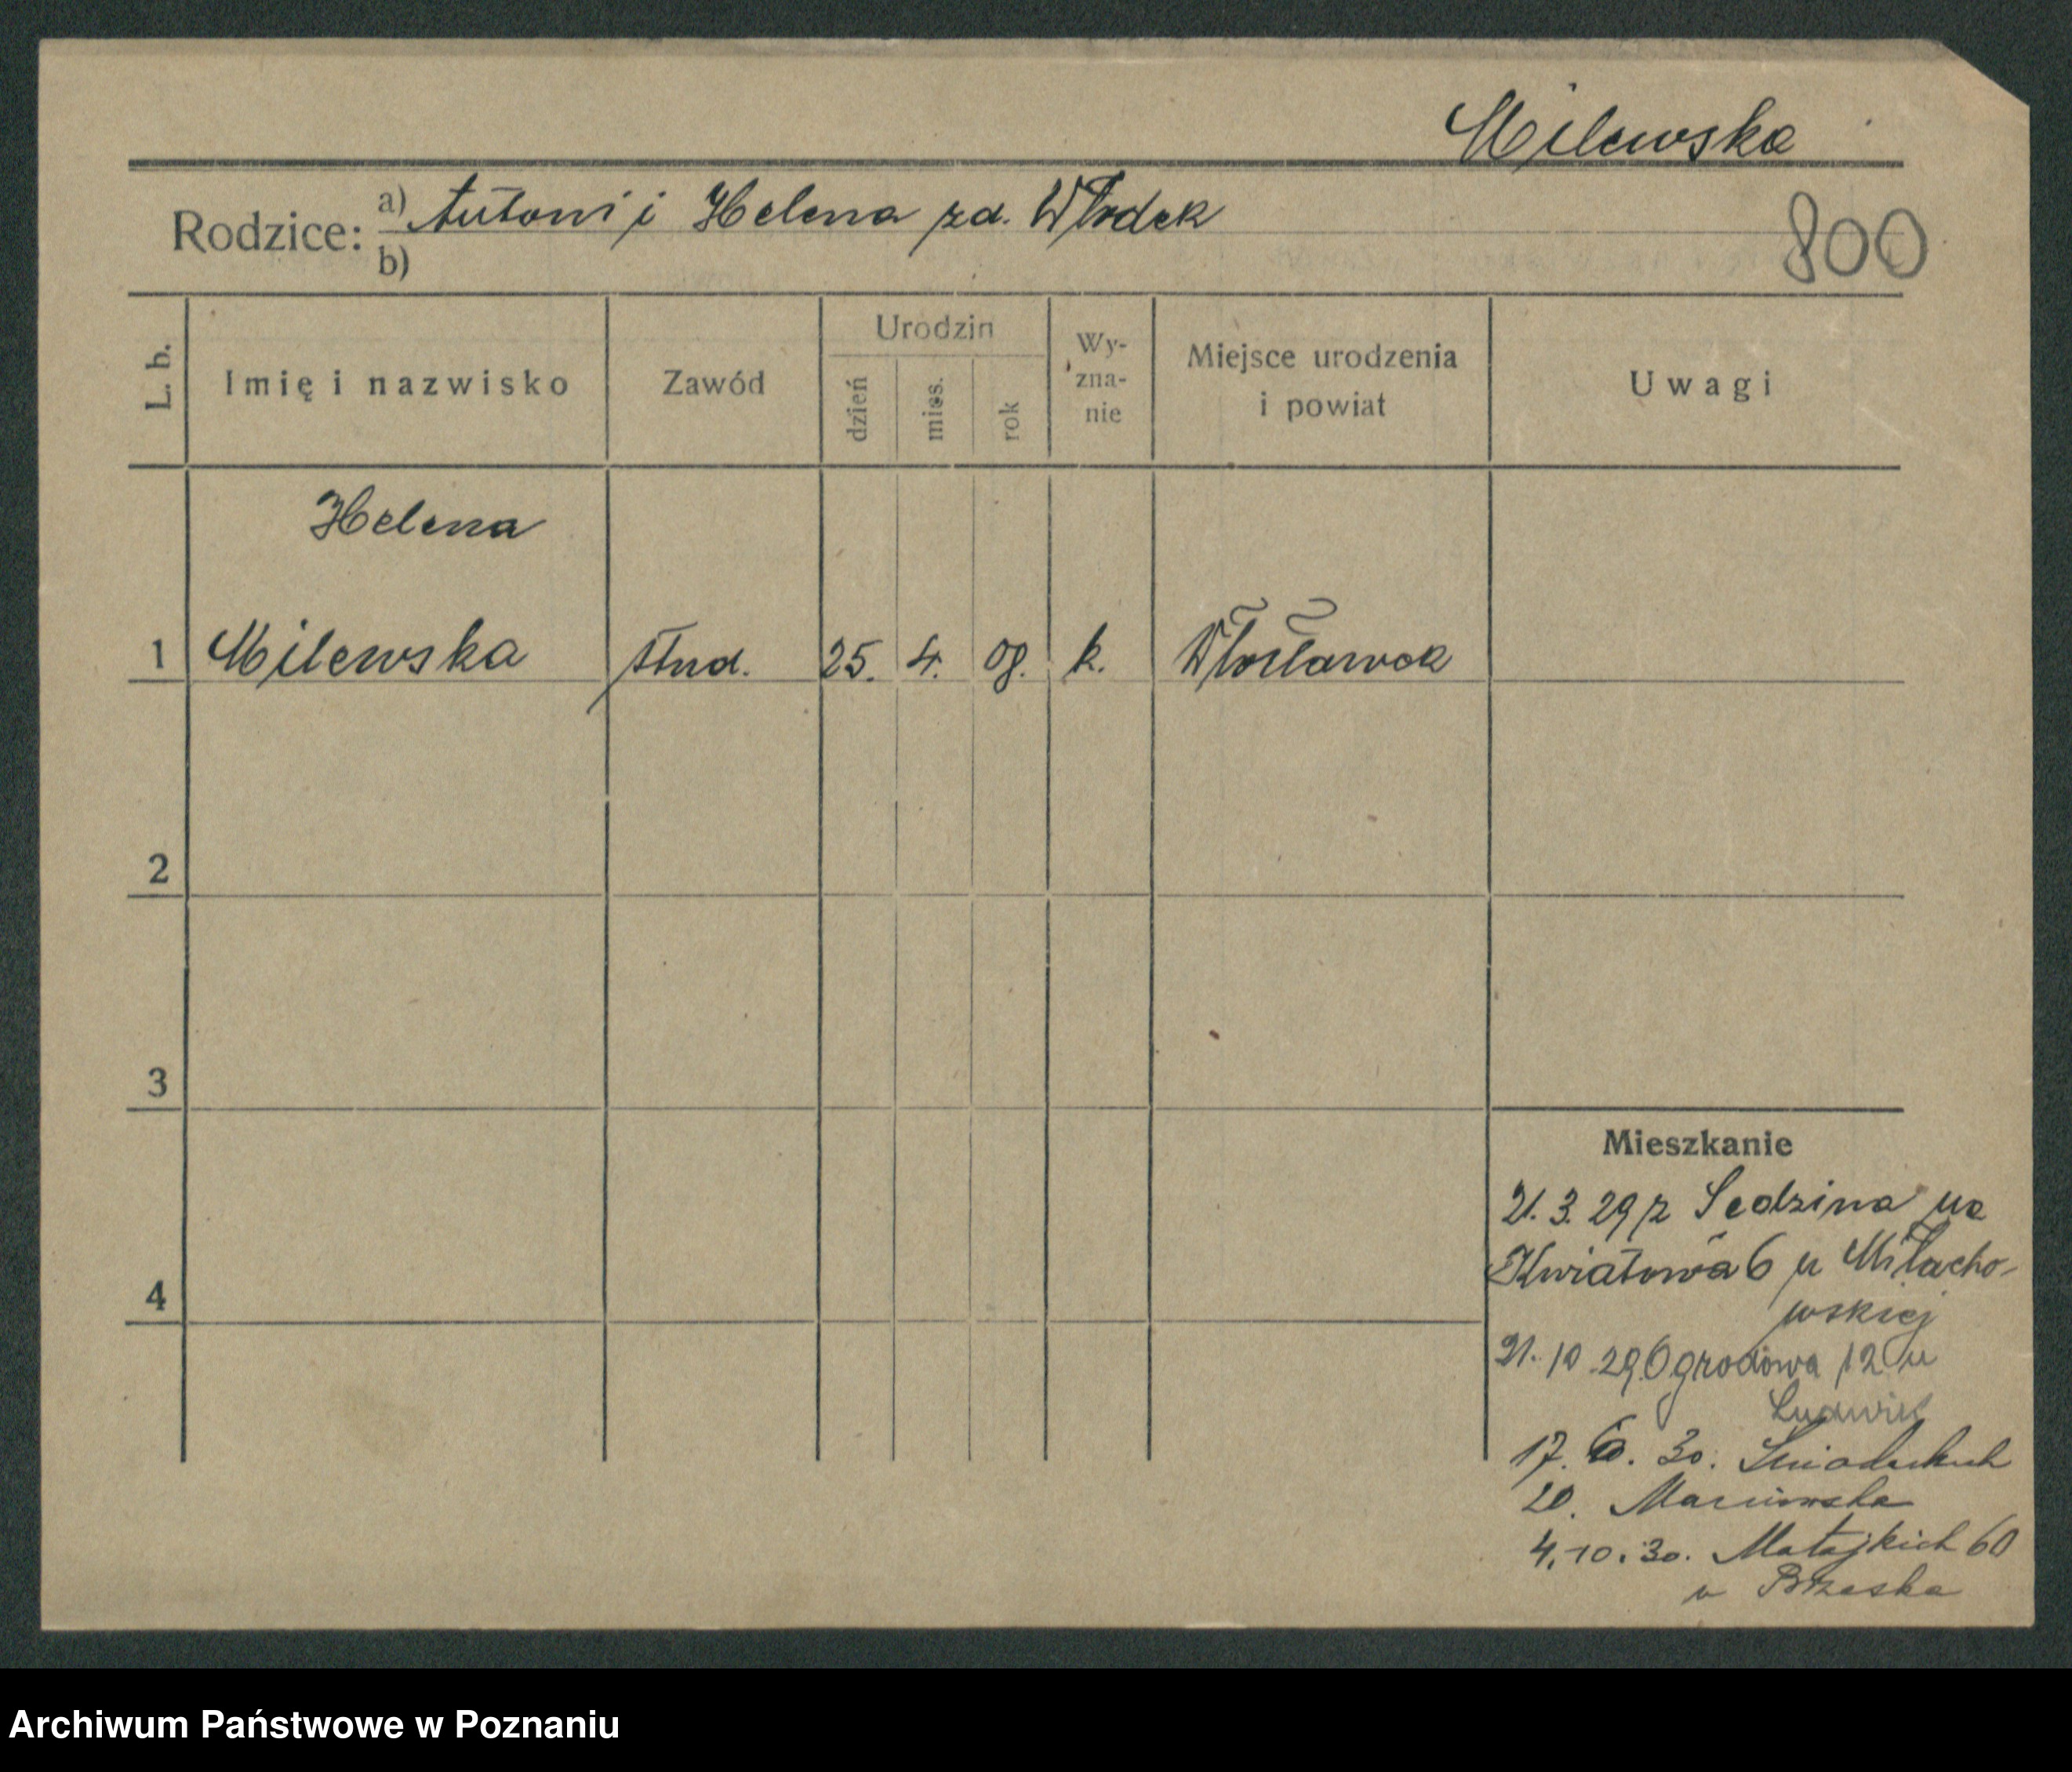 Milewska
Rodzice: a) Antoni i Helena zd. Włodek
b)
800
L. b.
Imię i nazwisko
Zawód
Urodzin
dzień
mies.
rok
Wy-
zna-
nie
Miejsce urodzenia
i powiat
Uwagi
Helena
1 Milewska stud. 25. 4. 08. k. Włocławek
2
3
4
Mieszkanie
21. 3. 29 z Sedzina na
Kwiatowa 6 u Miłacho-
wskiej
21. 10 29 Ogrodowa 12 u
Ludwik
17. 30. Śniadeckich
20.
4. 10. 30. Matejkich 60
u Brzeska
Archiwum Państwowe w Poznaniu